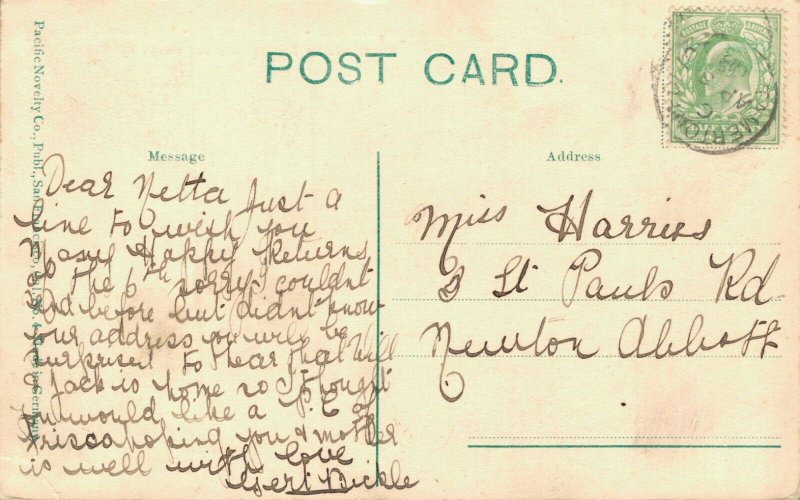 POST CARD.
Message
Dear Netta Just a
line to wish you
Many Happy Returns
of the 6th sorry couldnt
send before but didnt know
your address you will be
surprised to hear that Will
& Jack is home so I thought
you would like a P.C of
Frisco hoping you & mother
is well with love
Gert Bickle
Address
Miss Harries
3 St Pauls Rd
Newton Abbott
Pacific Novelty Co., Publ., San Francisco, Cal.